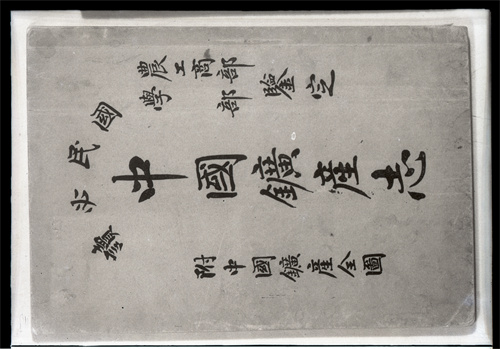 農工商部
學部
鑒定
國民必讀
中國鑛產志
附中國鑛產全圖